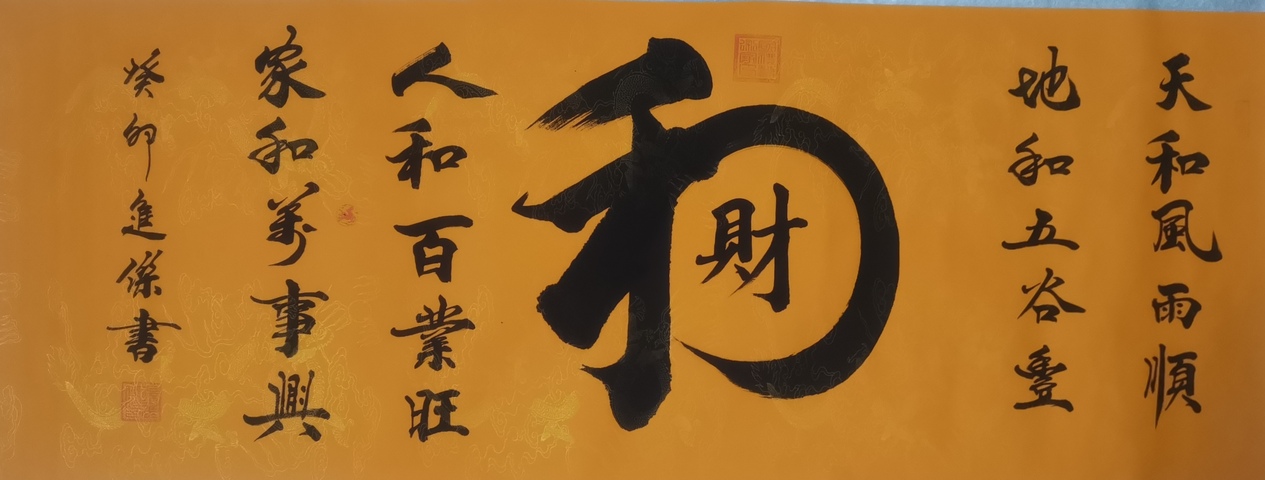 天和風雨順
地和五谷豐
和
財
人和百業旺
家和萬事興
癸卯進傑書